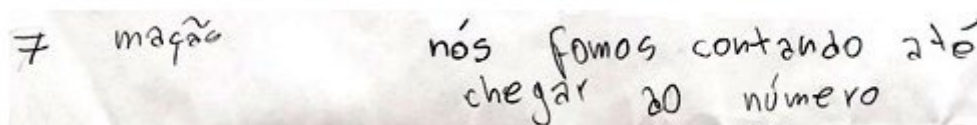 7 mação nós fomos contando até
chegar ao número